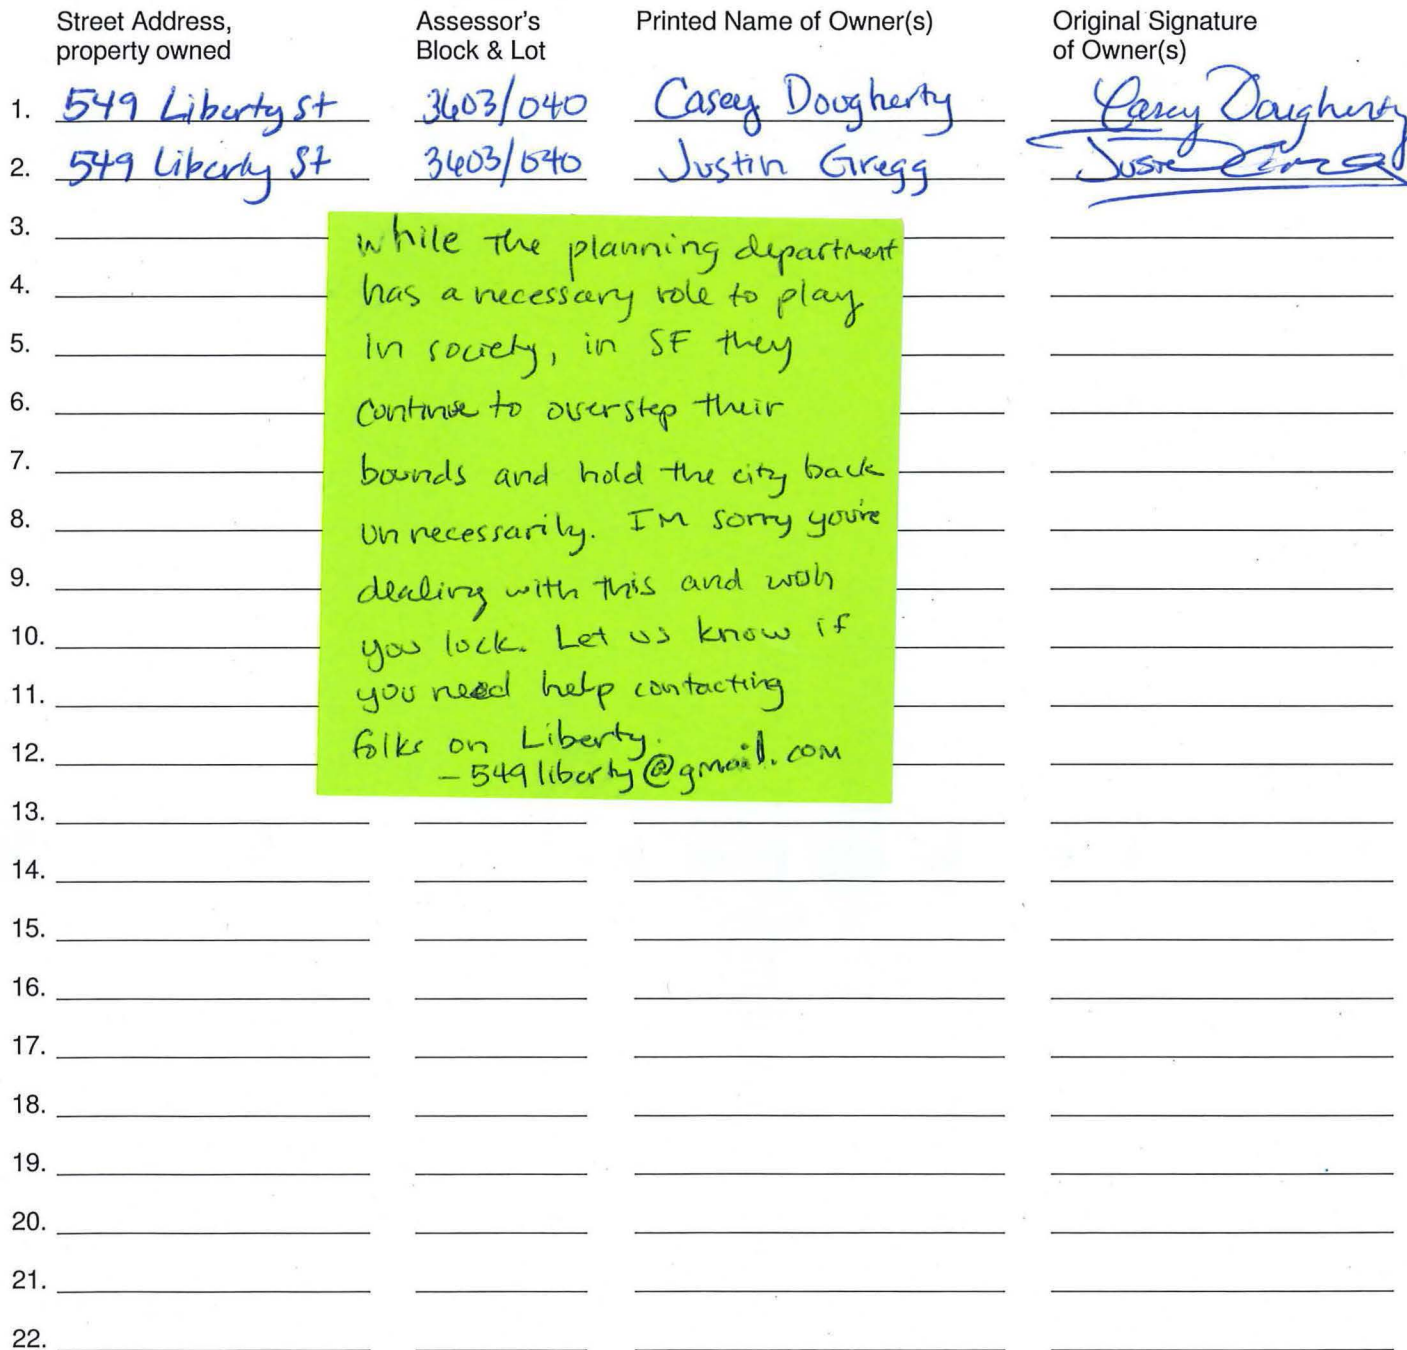 Street Address, property owned Assessor's Block & Lot Printed Name of Owner(s) Original Signature of Owner(s)
1. 549 Liberty St 3603/040 Casey Dougherty Casey Dougherty
2. 549 Liberty St 3603/040 Justin Gregg
3.
4.
5.
6.
7.
8.
9.
10.
11.
12.
13.
14.
15.
16.
17.
18.
19.
20.
21.
22.
While the planning department
has a necessary role to play
in society, in SF they
continue to overstep their
bounds and hold the city back
unnecessarily. I'm sorry you're
dealing with this and wish
you luck. Let us know if
you need help contacting
folks on Liberty.
– 549liberty@gmail.com